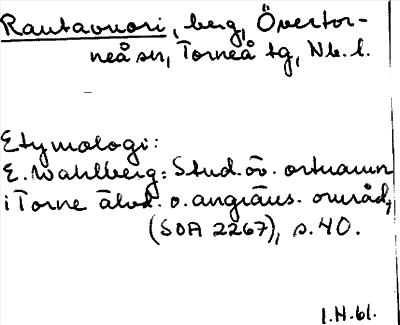 Rautavuori, berg, Övertor-
neå sn, Torneå tg, Nb. l.
Etymologi:
E. Wahlberg: Stud. öv. ortnamn
i Torne älvd. o. angräns. områd,
(SOA 2267), s. 40.
1.H.61.